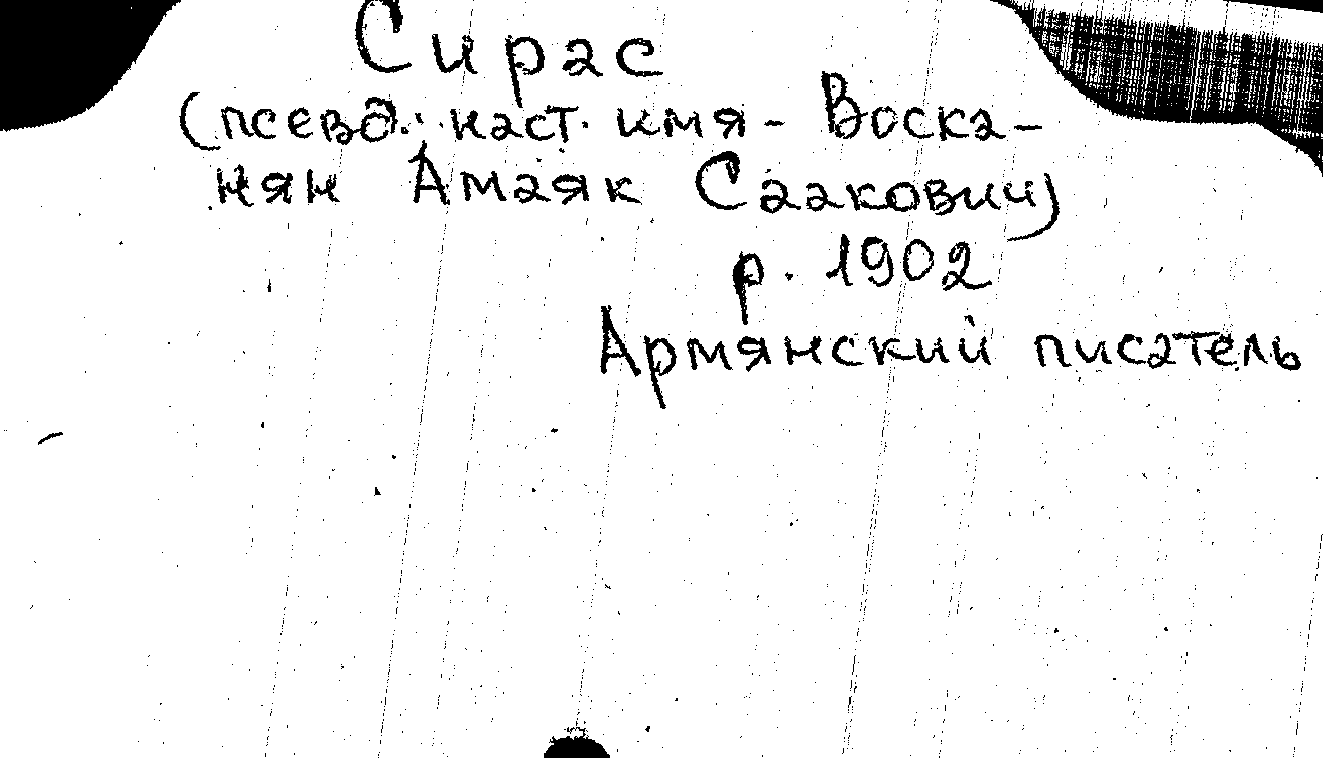 Сирас
(псевд.; наст. имя - Воска-
нян Амаяк Саакович)
р. 1902
Армянский писатель